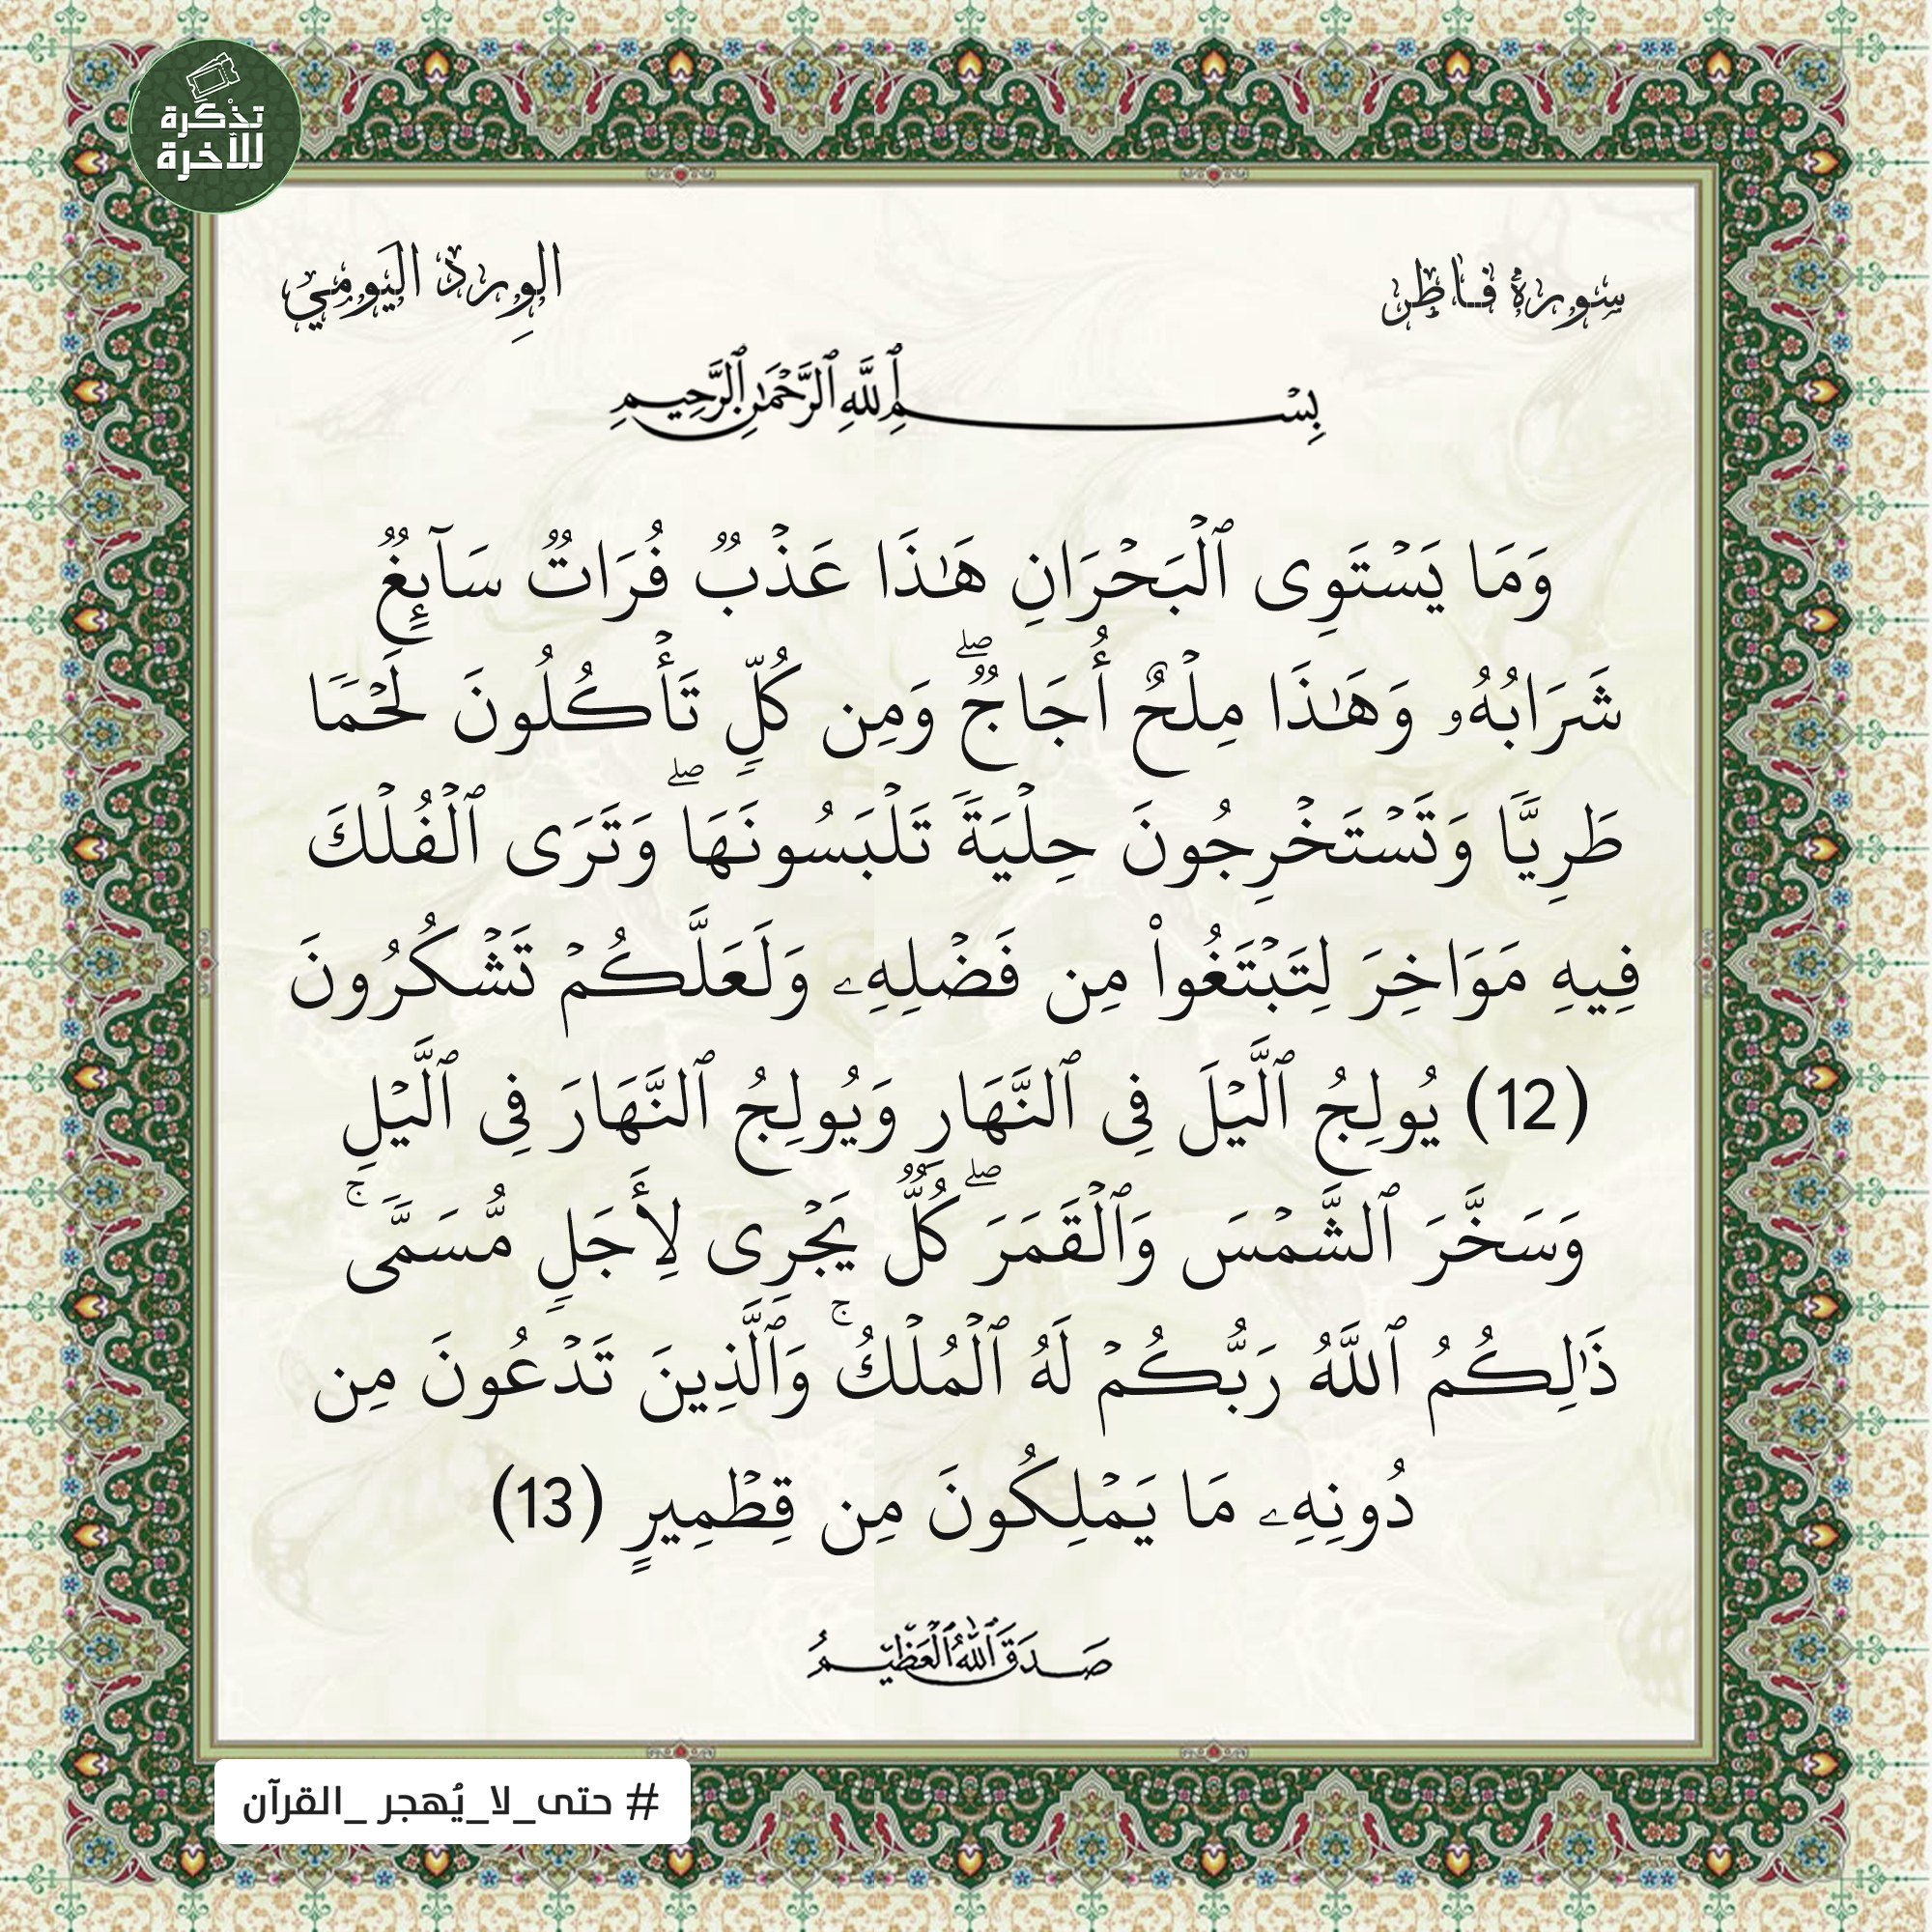 تذكرة
للآخرة
سورة فاطر
الورد اليومي
بِسْمِ ٱللَّهِ ٱلرَّحْمَٰنِ ٱلرَّحِيمِ
وَمَا يَسۡتَوِى ٱلۡبَحۡرَانِ هَٰذَا عَذۡبٞ فُرَاتٞ سَآئِغٞ
شَرَابُهُۥ وَهَٰذَا مِلۡحٌ أُجَاجٞۖ وَمِن كُلّٖ تَأۡكُلُونَ لَحۡمٗا
طَرِيّٗا وَتَسۡتَخۡرِجُونَ حِلۡيَةٗ تَلۡبَسُونَهَاۖ وَتَرَى ٱلۡفُلۡكَ
فِيهِ مَوَاخِرَ لِتَبۡتَغُواْ مِن فَضۡلِهِۦ وَلَعَلَّكُمۡ تَشۡكُرُونَ
(12) يُولِجُ ٱلَّيۡلَ فِى ٱلنَّهَارِ وَيُولِجُ ٱلنَّهَارَ فِى ٱلَّيۡلِ
وَسَخَّرَ ٱلشَّمۡسَ وَٱلۡقَمَرَۖ كُلّٞ يَجۡرِى لِأَجَلٖ مُّسَمّٗىۚ
ذَٰلِكُمُ ٱللَّهُ رَبُّكُمۡ لَهُ ٱلۡمُلۡكُۚ وَٱلَّذِينَ تَدۡعُونَ مِن
دُونِهِۦ مَا يَمۡلِكُونَ مِن قِطۡمِيرٍ (13)
صَدَقَ ٱللَّهُ ٱلْعَظِيمُ
# حتى_لا_يُهجر _القرآن